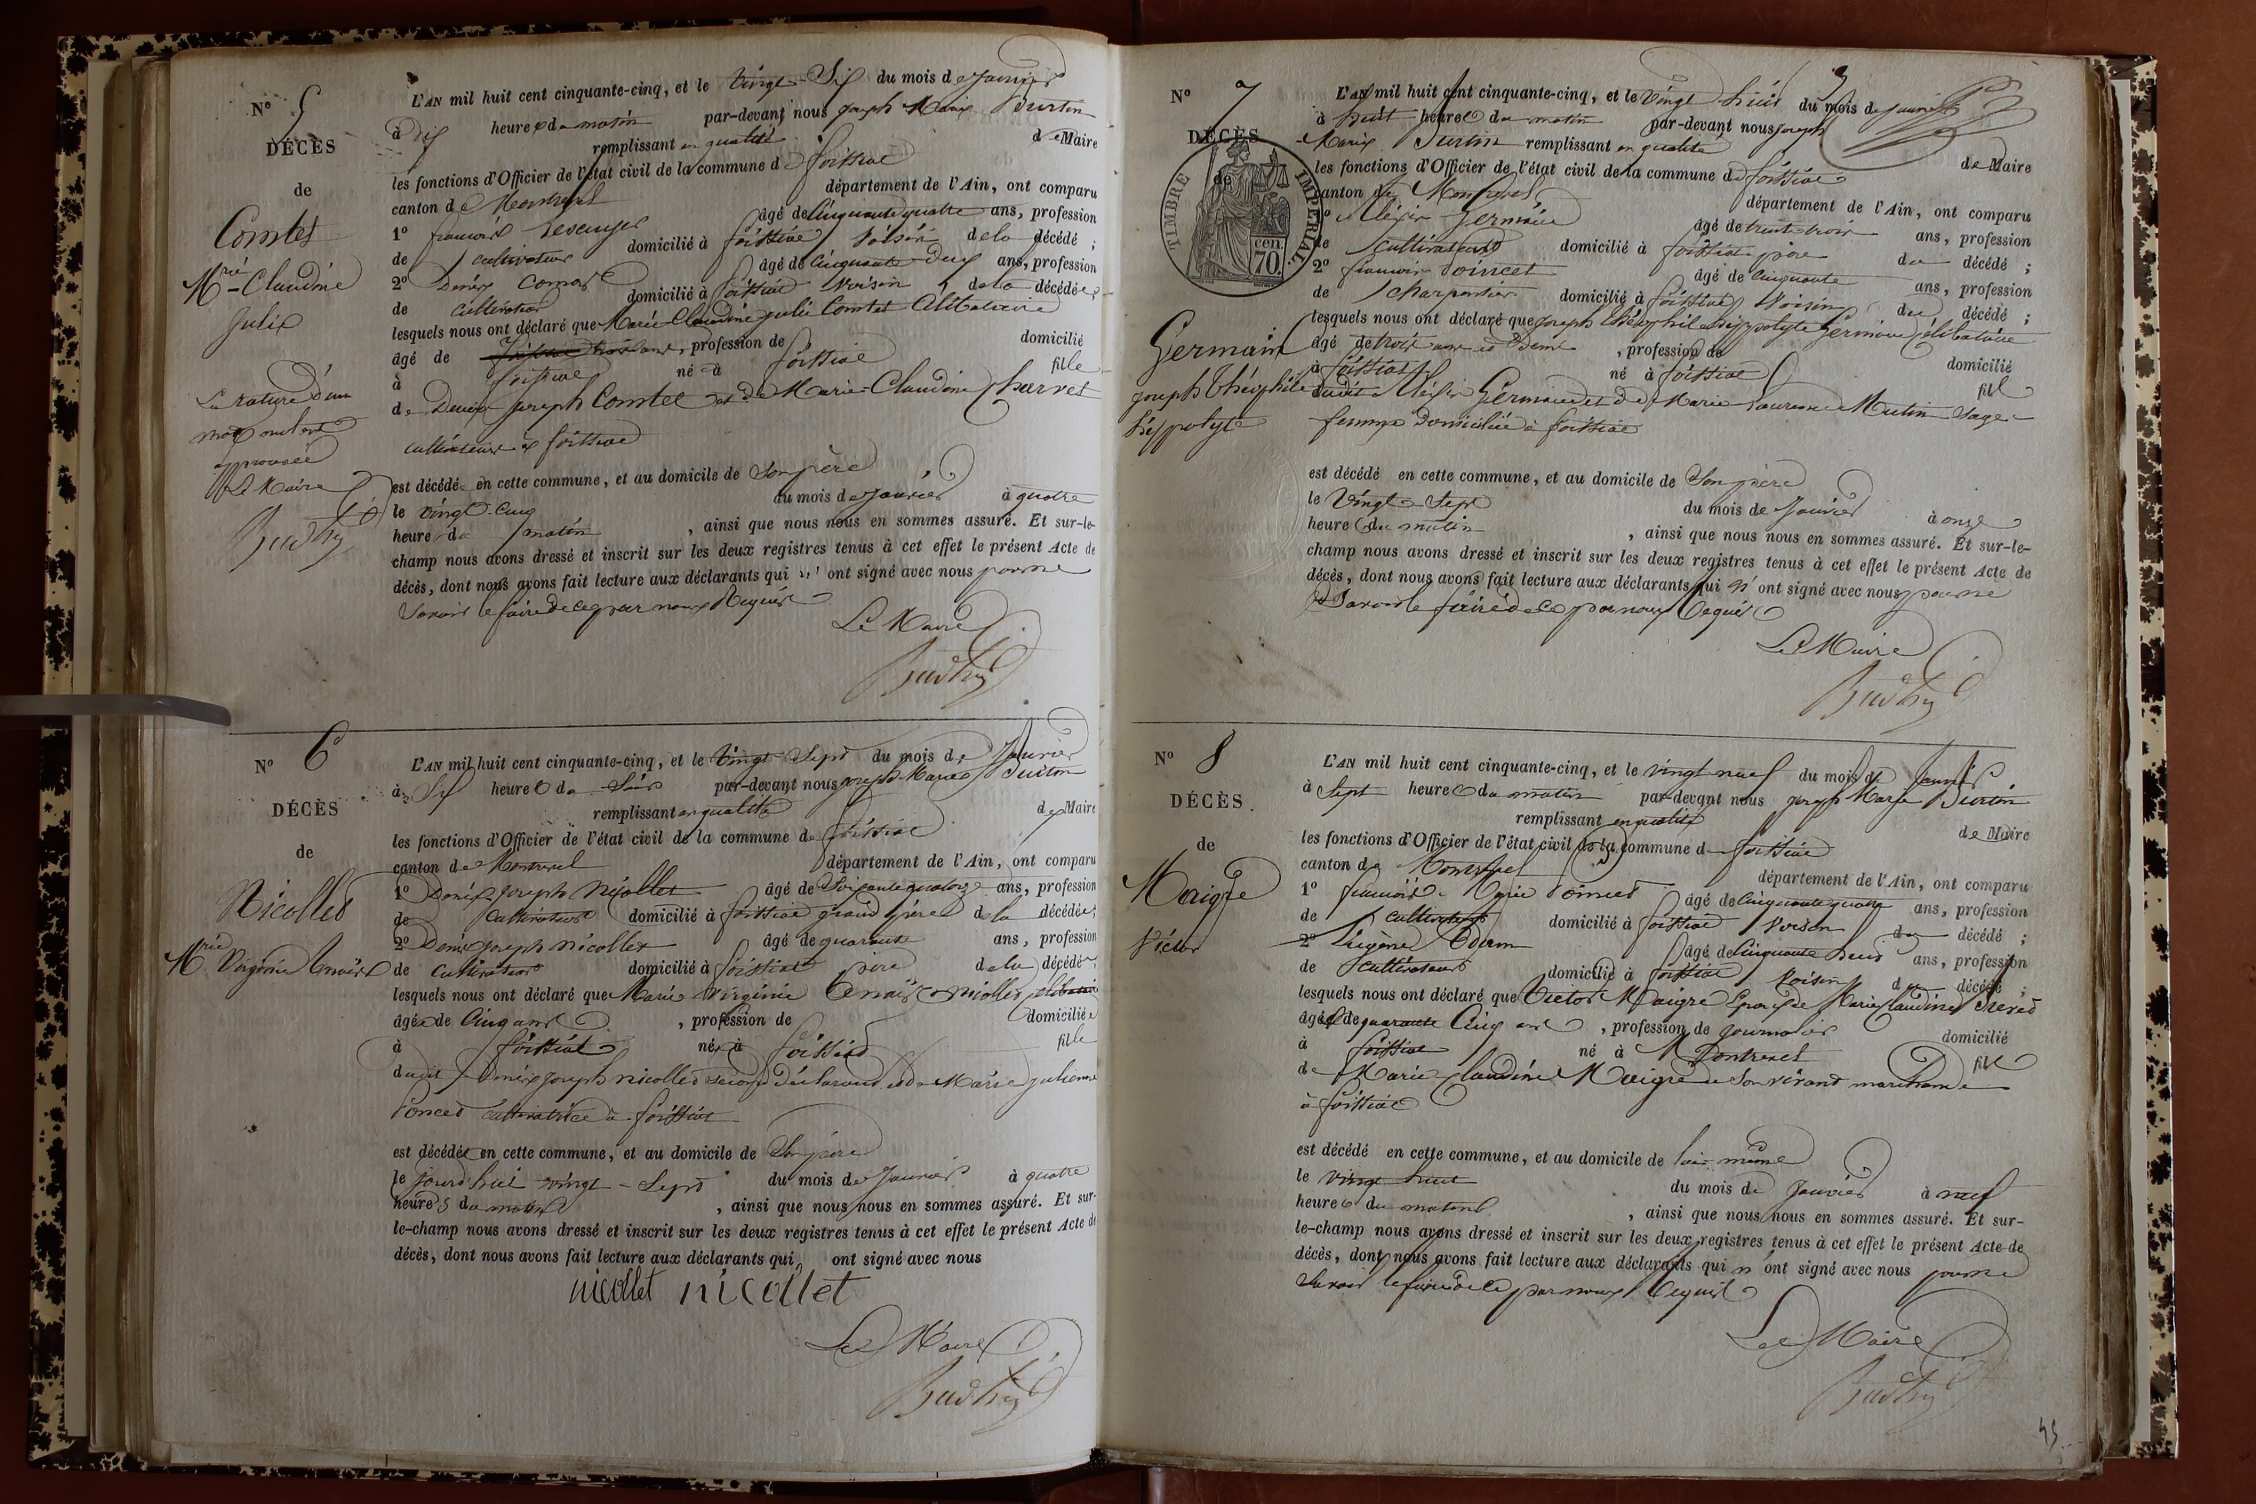 N° 5
DÉCÈS
de
Comtet
Mrie Claudine
Julie
La rature d'un
mot
approuvée
Le Maire
L'AN mil huit cent cinquante-cinq, et le Vingt-Six du mois de Janvier
à dix heures du matin par-devant nous Joseph Marie
remplissant en qualité de Maire
les fonctions d'Officier de l'état civil de la commune de foissiat
canton de Montrevel département de l'Ain, ont comparu
1° françois âgé de Cinquante quatre ans, profession
de cultivateur domicilié à foissiat Voisin de la décédé ;
2° Denis âgé de Cinquante-deux ans, profession
de cultivateur domicilié à foissiat Voisin de la décédée
lesquels nous ont déclaré que Marie Claudine Julie Comtet Célibataire
âgé de trois ans, profession de domicilié
à foissiat né à foissiat fille
de Denis Joseph Comtet et de Marie-Claudine Charvet
cultivateurs à foissiat
est décédée en cette commune, et au domicile de Son père
le vingt-cinq du mois de Janvier à quatre
heure du matin, ainsi que nous nous en sommes assuré. Et sur-le-
champ nous avons dressé et inscrit sur les deux registres tenus à cet effet le présent Acte de
décès, dont nous avons fait lecture aux déclarants qui n' ont signé avec nous pour ne
Savoir le faire de ce par nous Requis
Le Maire
N° 6
DÉCÈS
de
Nicollet
Mrie Virginie
L'AN mil huit cent cinquante-cinq, et le Vingt Sept du mois de Janvier
à Six heures du Soir par-devant nous Joseph Marie
remplissant en qualité de Maire
les fonctions d'Officier de l'état civil de la commune de foissiat
canton de Montrevel département de l'Ain, ont comparu
1° Denis Joseph Nicollet âgé de Soixante quatorze ans, profession
de Cultivateur domicilié à foissiat grand père de la décédée ;
2° Denis Joseph Nicollet âgé de quarante ans, profession
de Cultivateur domicilié à foissiat père de la décédée ;
lesquels nous ont déclaré que Marie Virginie Nicollet célibataire
âgée de Cinq ans, profession de domiciliée
à foissiat née à foissiat fille
dudit Denis Joseph Nicollet Second Déclarant et de Marie Julienne
Poncet Cultivatrice à foissiat
est décédée en cette commune, et au domicile de Son père
le Jourd'hui vingt-Sept du mois de Janvier à quatre
heures du matin, ainsi que nous nous en sommes assuré. Et sur-
le-champ nous avons dressé et inscrit sur les deux registres tenus à cet effet le présent Acte de
décès, dont nous avons fait lecture aux déclarants qui ont signé avec nous
nicollet nicollet
Le Maire
N° 7
DÉCÈS
de
TIMBRE IMPERIAL
70 cen.
Germain
Joseph Théophile
hippolyte
L'AN mil huit cent cinquante-cinq, et le Vingt huit du mois de Janvier
à huit heures du matin par-devant nous Joseph
Marie remplissant en qualité de Maire
les fonctions d'Officier de l'état civil de la commune de foissiat
canton de Montrevel département de l'Ain, ont comparu
1° Alexis Germain âgé de trente-trois ans, profession
de cultivateur domicilié à foissiat père du décédé ;
2° françois Poincet âgé de Cinquante ans, profession
de charpentier domicilié à foissiat Voisin du décédé ;
lesquels nous ont déclaré que Joseph théophile hippolyte Germain Célibataire
âgé de trois ans et Demi, profession de domicilié
à foissiat né à foissiat fils
dudit Alexis Germain et de Marie Laurence Mutin Sage-
femme Domiciliée à foissiat
est décédé en cette commune, et au domicile de Son père
le Vingt-Sept du mois de Janvier à onze
heures du matin, ainsi que nous nous en sommes assuré. Et sur-le-
champ nous avons dressé et inscrit sur les deux registres tenus à cet effet le présent Acte de
décès, dont nous avons fait lecture aux déclarants qui n' ont signé avec nous pour ne
Savoir le faire de ce par nous Requis
Le Maire
N° 8
DÉCÈS.
de
Maigre
Victor
L'AN mil huit cent cinquante-cinq, et le vingt neuf du mois de Janvier
à Sept heures du matin par-devant nous Joseph Marie
remplissant en qualité de Maire
les fonctions d'Officier de l'état civil de la commune de foissiat
canton de Montrevel département de l'Ain, ont comparu
1° françois Marie Poincet âgé de Cinquante quatre ans, profession
de cultivateur domicilié à foissiat Voisin du décédé ;
2° Eugène âgé de Cinquante ans, profession
de cultivateur domicilié à foissiat Voisin du décédé ;
lesquels nous ont déclaré que Victor Maigre Epoux de Marie Claudine
âgé de quarante Cinq ans, profession de Journalier domicilié
à foissiat né à Montrevel fils
de Marie Claudine Maigre de Son vivant marchande
à foissiat
est décédé en cette commune, et au domicile de lui même
le vingt huit du mois de Janvier à neuf
heures du matin, ainsi que nous nous en sommes assuré. Et sur-
le-champ nous avons dressé et inscrit sur les deux registres tenus à cet effet le présent Acte de
décès, dont nous avons fait lecture aux déclarants qui n' ont signé avec nous pour ne
Savoir le faire de ce par nous Requis
Le Maire